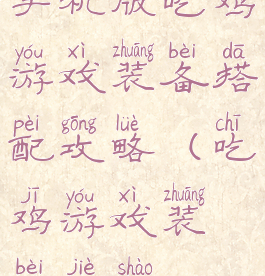 手机版吃鸡
yóu xì zhuāng bèi dā
游戏装备搭
pèi gōng lüè chī
配攻略（吃
jī yóu xì zhuāng
鸡游戏装
bèi jiè shào